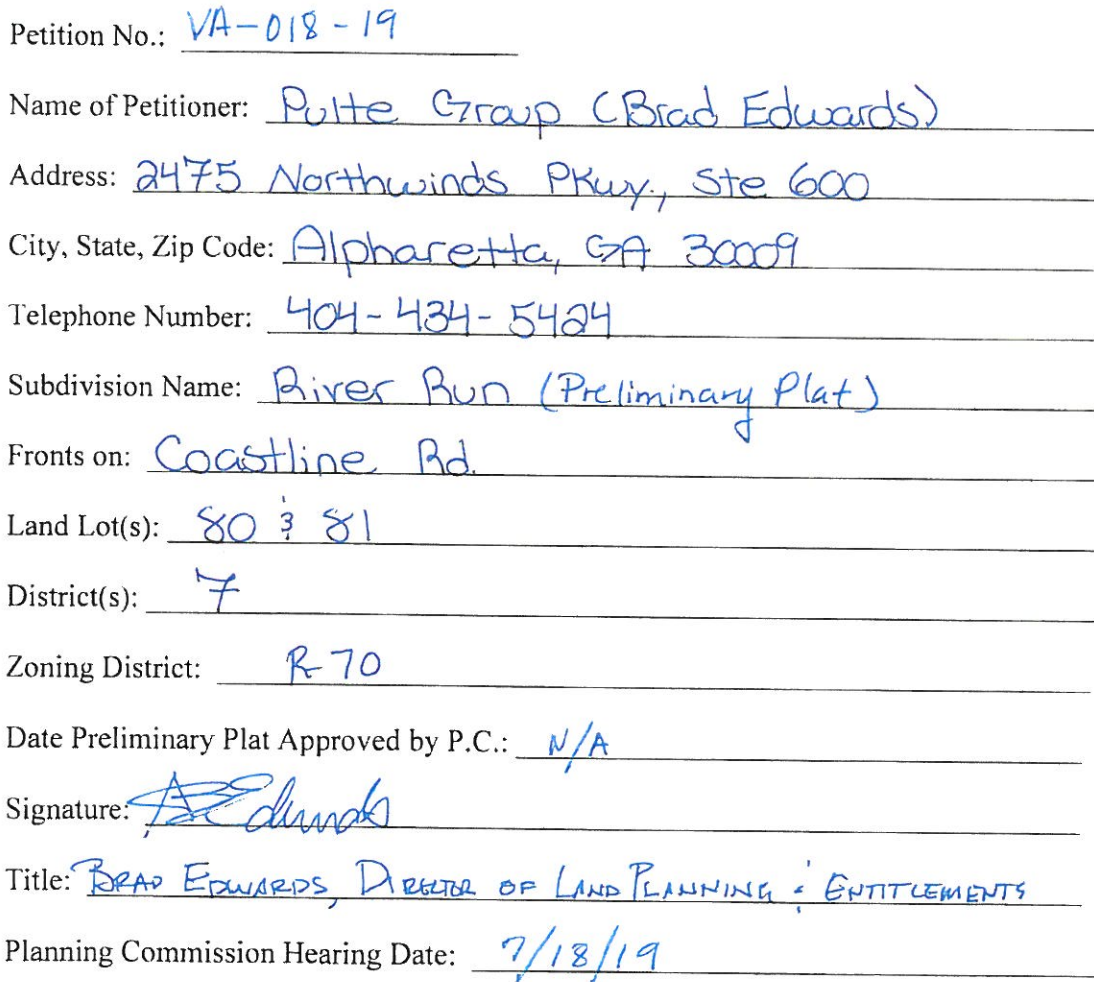 Petition No.: VA-018-19
Name of Petitioner: Pulte Group (Brad Edwards)
Address: 2475 Northwinds PKwy., Ste 600
City, State, Zip Code: Alpharetta, GA 30009
Telephone Number: 404-434-5424
Subdivision Name: River Run (Preliminary Plat)
Fronts on: Coastline Rd.
Land Lot(s): 80 & 81
District(s): 7
Zoning District: R-70
Date Preliminary Plat Approved by P.C.: N/A
Signature: Edwards
Title: BRAD EDWARDS, DIRECTOR OF LAND PLANNING & ENTITLEMENTS
Planning Commission Hearing Date: 7/18/19